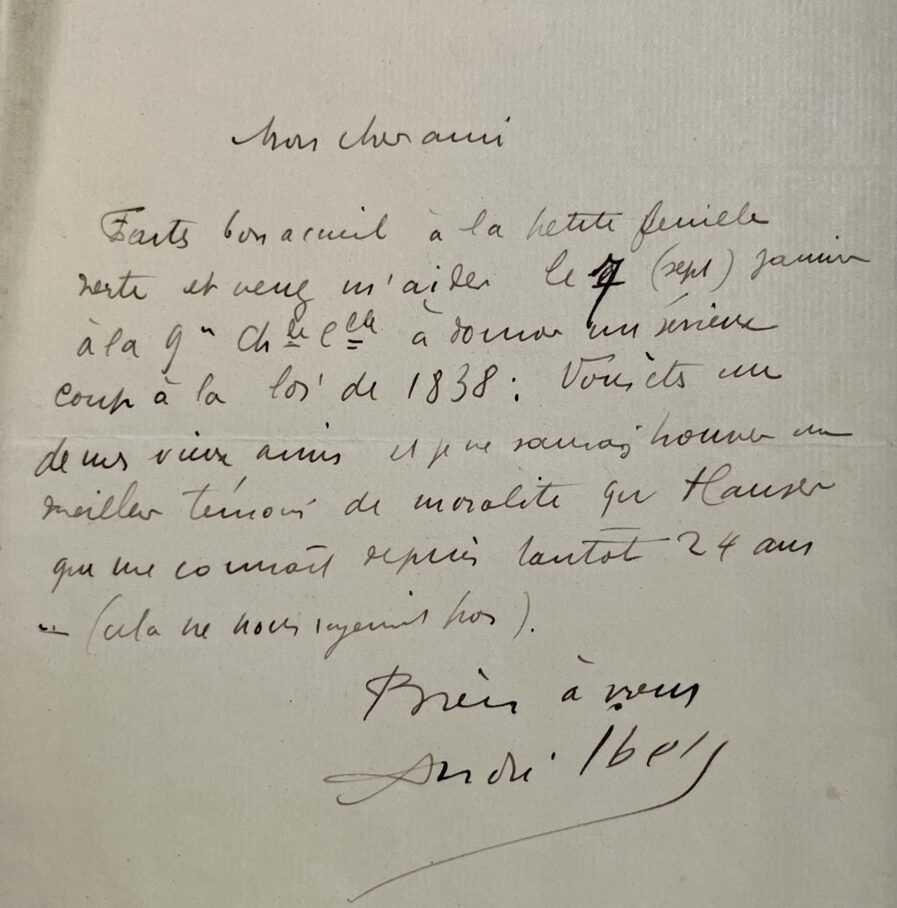 Mon cher ami
Faites bon accueil à la petite feuille
verte et venez m'aider le 7 (sept) janvier
à la 9e Ch à donner un sérieux
coup à la loi de 1838 : Vous êtes un
de mes vieux amis et je ne saurais trouver un
meilleur témoin de moralité que Hauser
qui me connaît depuis tantôt 24 ans
(cela ne nous rajeunit pas).
Bien à vous
André Ibels